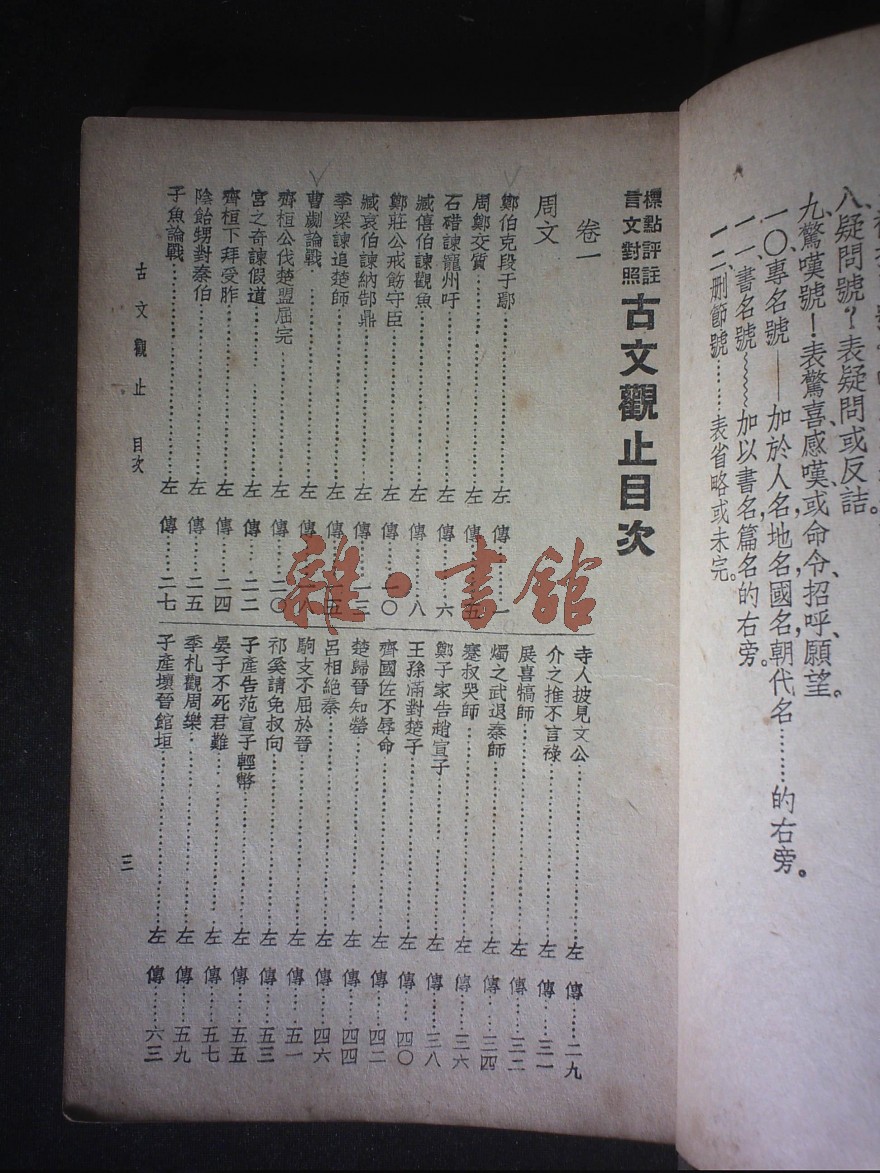 八、疑問號？表疑問或反詰。
九、驚嘆號！表驚喜、感嘆或命令、招呼、願望。
一〇、專名號——加於人名，地名，國名，朝代名……的右旁。
一一、書名號～～～加以書名篇名的右旁。
一二、刪節號……表省略或未完。
標點評註
言文對照
古文觀止目次
卷一
周文
鄭伯克段于鄢……左傳……一
周鄭交質……左傳……五
石碏諫寵州吁……左傳……六
臧僖伯諫觀魚……左傳……八
鄭莊公戒飭守臣……左傳……一〇
臧哀伯諫納郜鼎……左傳……一三
季梁諫追楚師……左傳……一五
曹劌論戰……左傳……一八
齊桓公伐楚盟屈完……左傳……二〇
宮之奇諫假道……左傳……二二
齊桓下拜受胙……左傳……二四
陰飴甥對秦伯……左傳……二五
子魚論戰……左傳……二七
寺人披見文公……左傳……二九
介之推不言祿……左傳……三一
展喜犒師……左傳……三二
燭之武退秦師……左傳……三四
蹇叔哭師……左傳……三六
鄭子家告趙宣子……左傳……三八
王孫滿對楚子……左傳……四〇
齊國佐不辱命……左傳……四二
楚歸晉知罃……左傳……四四
呂相絕秦……左傳……四六
駒支不屈於晉……左傳……五一
祁奚請免叔向……左傳……五三
子產告范宣子輕幣……左傳……五五
晏子不死君難……左傳……五七
季札觀周樂……左傳……五九
子產壞晉館垣……左傳……六三
古文觀止 目次
三
雜·書館